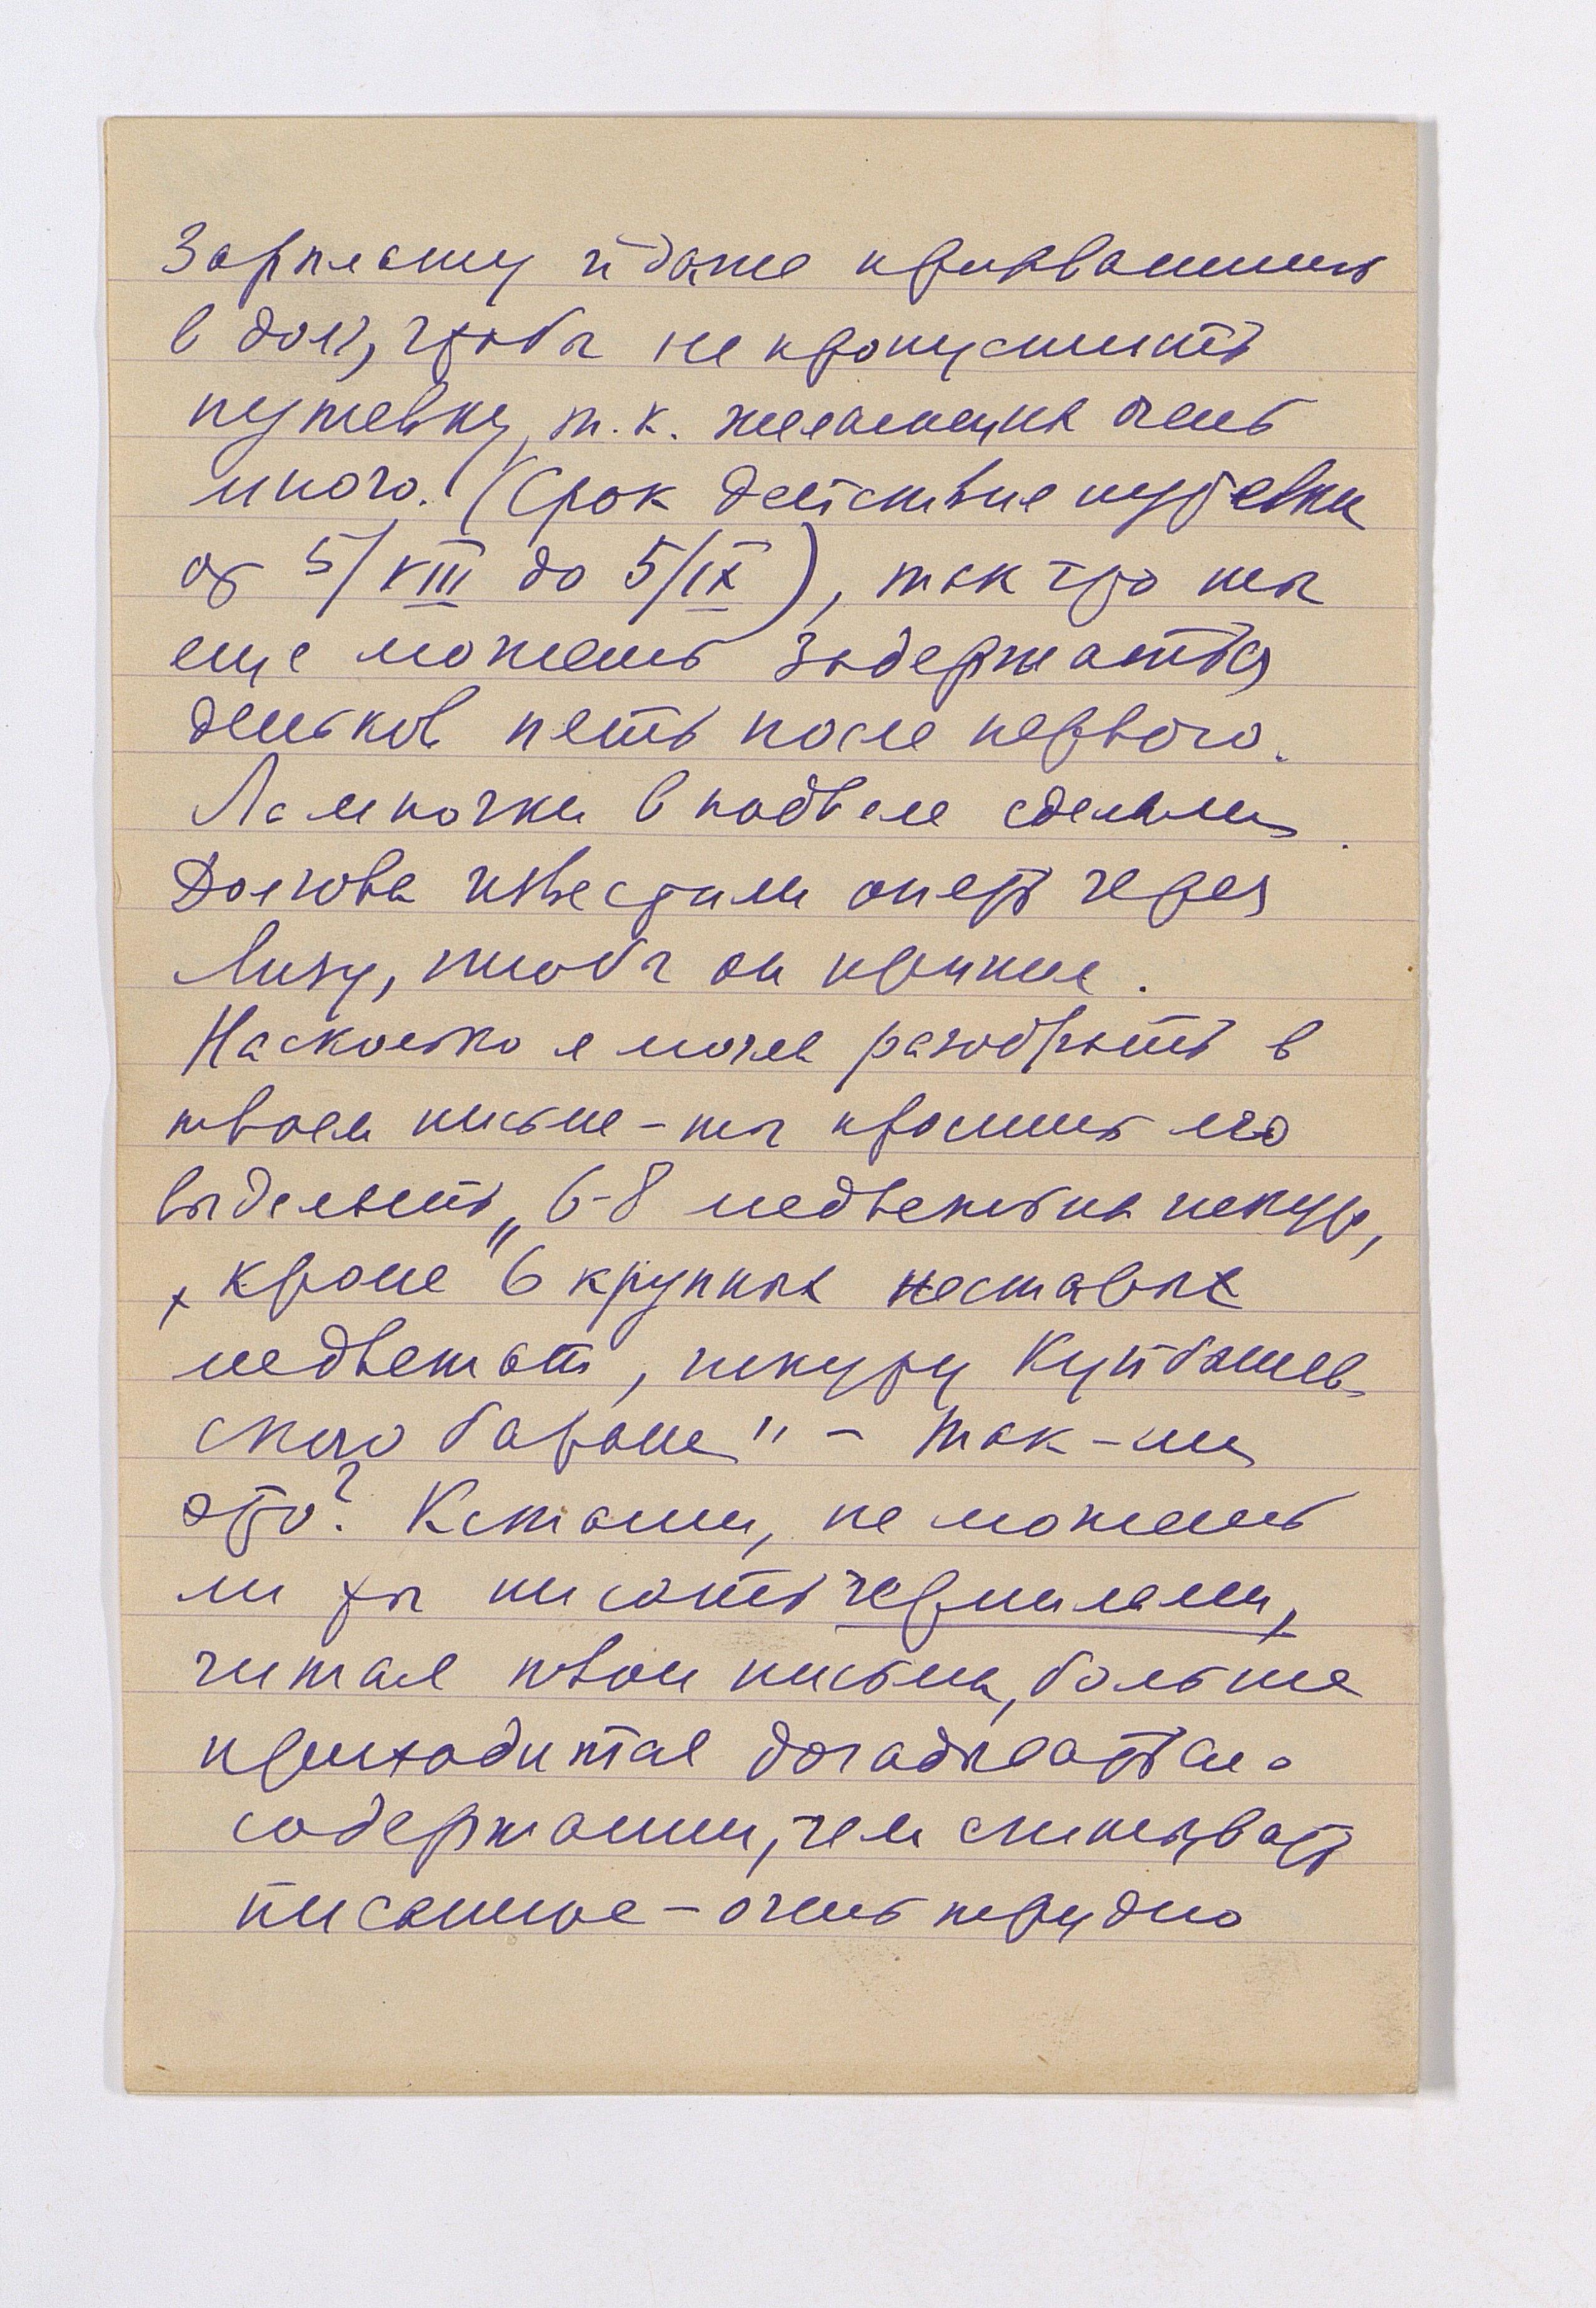 Зарплату и даже прихватить
в долг, чтобы не пропустить
путевку, т.к. желающих очень
много. (Срок действия путевки
от 5/VIII до 5/IX), так что ты
еще можешь задержаться
деньков пять после первого.
Лампочки в подвале сделали.
Долгова известили опять через
Лизу, чтобы он пришел.
Насколько я могла разобрать в
твоем письме - ты просишь его
выделать „6-8 медвежьих шкур,
, кроме 6 крупных нестарых
медвежат, шкуру Куйбышев-
ского барана" - так-ли
это? Кстати, не можешь
ли ты писать чернилами,
читая твои письма, больше
приходится догадываться о
содержании, чем считывать
писанное - очень трудно